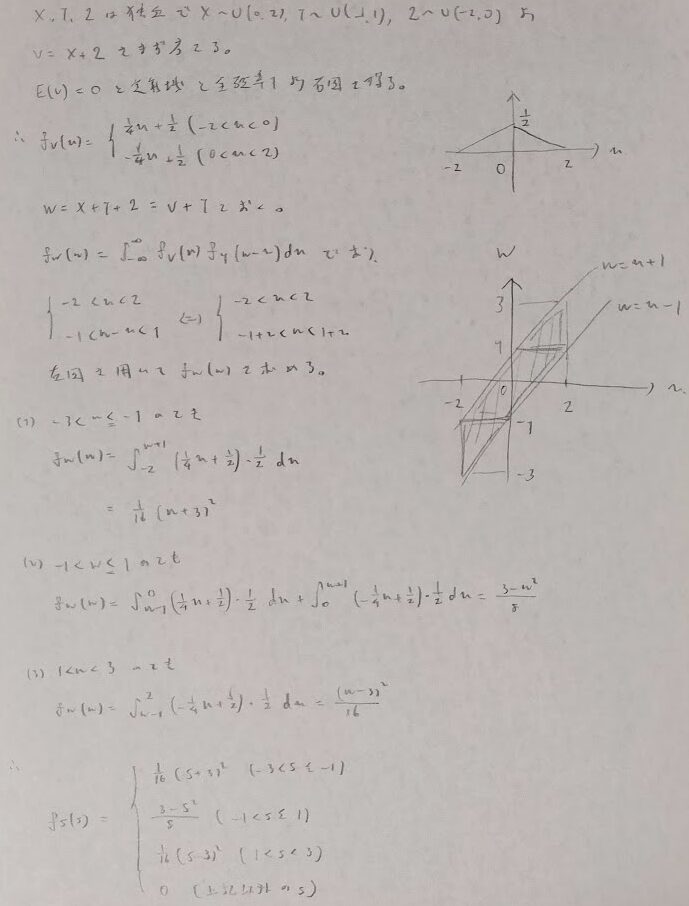 X, Y, Z は独立で X~U(0,2), Y~U(-1,1), Z~U(-2,0) より
V = X+Z をまず考える。
E(V)=0 と定義域と全確率1より右図を得る。
∴ fv(u) = { 1/4 u + 1/2 (-2<u<0)
-1/4 u + 1/2 (0<u<2)
1/2
-2 0 2 u
W = X+Y+Z = V+Y とおく。
fw(w) = ∫_{-∞}^{∞} fv(u) fY(w-u) du であり、
{ -2<u<2 ⇔ { -2<u<2
-1<w-u<1 -1+u<w<1+u
右図を用いて fw(w) を求める。
W
w=u+1
w=u-1
3
1
-2 0 2 u
-1
-3
(1) -3<w≦-1 のとき
fw(w) = ∫_{-2}^{w+1} (1/4 u + 1/2)・1/2 du
= 1/16 (w+3)²
(2) -1<w≦1 のとき
fw(w) = ∫_{w-1}^{0} (1/4 u + 1/2)・1/2 du + ∫_{0}^{w+1} (-1/4 u + 1/2)・1/2 du = (3-w²)/8
(3) 1<w<3 のとき
fw(w) = ∫_{w-1}^{2} (-1/4 u + 1/2)・1/2 du = (w-3)²/16
∴
fs(s) = { 1/16 (s+3)² (-3<s≦-1)
(3-s²)/8 (-1<s≦1)
1/16 (s-3)² (1<s<3)
0 (上記以外のs)